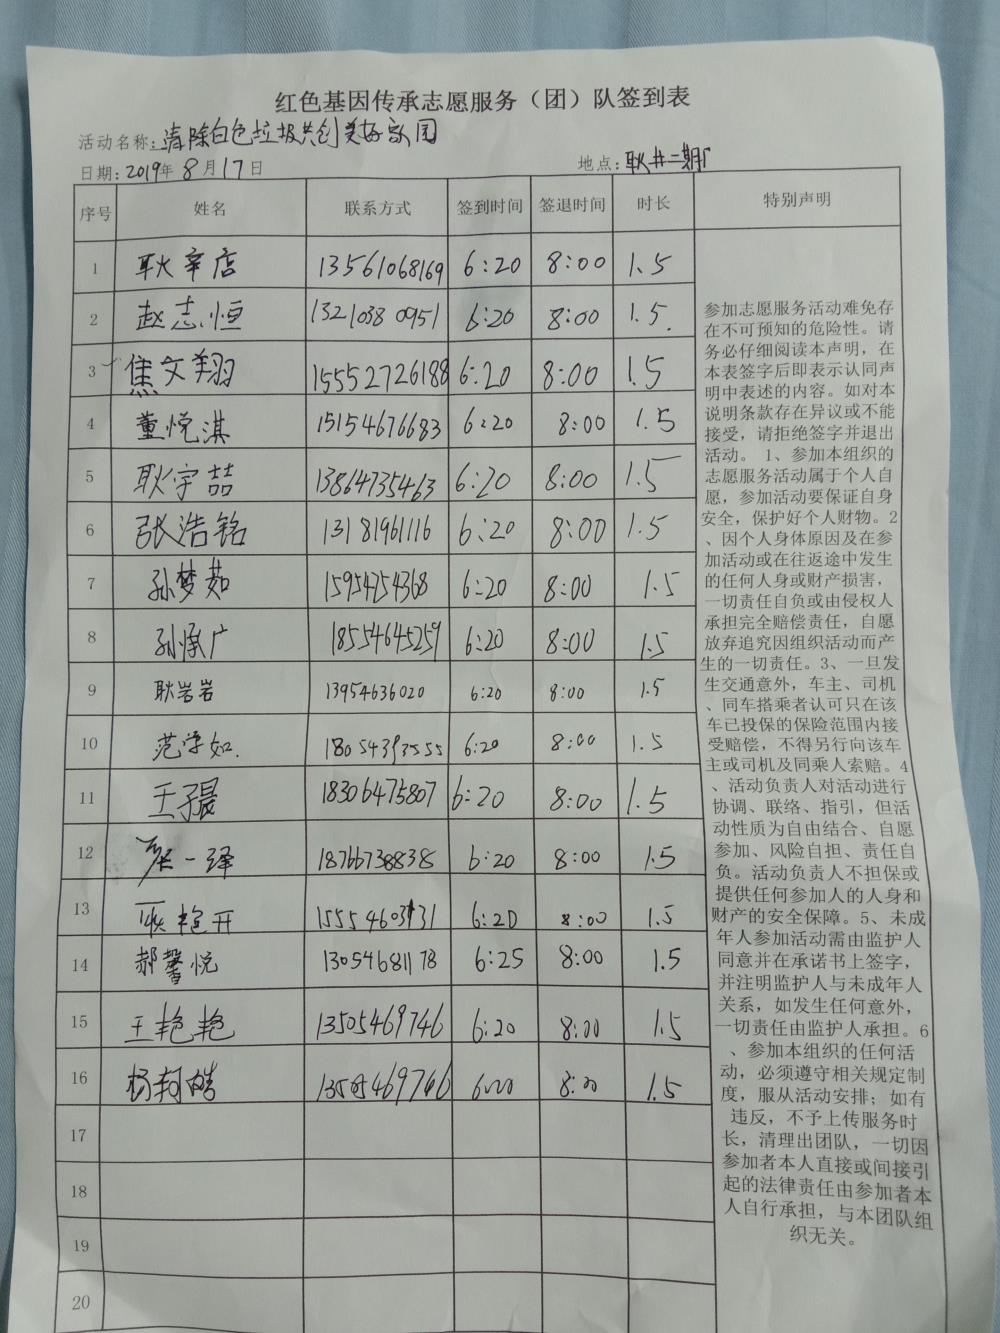 红色基因传承志愿服务（团）队签到表
活动名称：清除白色垃圾共创美好家园
日期：2019年8月17日 地点：耿井二期
序号 姓名 联系方式 签到时间 签退时间 时长 特别声明
1 耿辛店 13561068169 6:20 8:00 1.5
2 赵志恒 13210380951 6:20 8:00 1.5
3 焦文翔 15552726188 6:20 8:00 1.5
4 董悦淇 15154676683 6:20 8:00 1.5
5 耿宇喆 13864735463 6:20 8:00 1.5
6 张浩铭 13181961116 6:20 8:00 1.5
7 孙梦茹 15954254368 6:20 8:00 1.5
8 孙承广 18554645259 6:20 8:00 1.5
9 耿岩岩 13954636020 6:20 8:00 1.5
10 范学如 6:20 8:00 1.5
11 王子晨 18306475807 6:20 8:00 1.5
12 一绎 18766738838 6:20 8:00 1.5
13 6:20 8:00 1.5
14 郝馨悦 13054681178 6:25 8:00 1.5
15 王艳艳 13505469746 6:20 8:00 1.5
16 杨轲皓 13505469746 8:00 1.5
17
18
19
20
参加志愿服务活动难免存
在不可预知的危险性。请
务必仔细阅读本声明，在
本表签字后即表示认同声
明中表述的内容。如对本
说明条款存在异议或不能
接受，请拒绝签字并退出
活动。 1、参加本组织的
志愿服务活动属于个人自
愿，参加活动要保证自身
安全，保护好个人财物。2
、因个人身体原因及在参
加活动或在往返途中发生
的任何人身或财产损害，
一切责任自负或由侵权人
承担完全赔偿责任，自愿
放弃追究因组织活动而产
生的一切责任。3、一旦发
生交通意外，车主、司机
、同车搭乘者认可只在该
车已投保的保险范围内接
受赔偿，不得另行向该车
主或司机及同乘人索赔。4
、活动负责人对活动进行
协调、联络、指引，但活
动性质为自由结合、自愿
参加、风险自担、责任自
负。活动负责人不担保或
提供任何参加人的人身和
财产的安全保障。5、未成
年人参加活动需由监护人
同意并在承诺书上签字，
并注明监护人与未成年人
关系，如发生任何意外，
一切责任由监护人承担。6
、参加本组织的任何活
动，必须遵守相关规定制
度，服从活动安排；如有
违反，不予上传服务时
长，清理出团队，一切因
参加者本人直接或间接引
起的法律责任由参加者本
人自行承担，与本团队组
织无关。